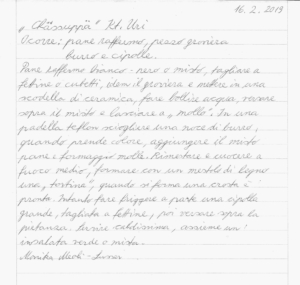 16. 2. 2019
"Chässuppä" Kt. Uri
Ocorre: pane raffermo, pezzo groviera
burro e cipolle.
Pane raffermo bianco - nero o misto, tagliare a
fettine o cubetti, idem il groviera e mettere in una
scodella di ceramica, fare bollire acqua, versare
sopra il misto e lasciare a "mollo". In una
padella teflon sciogliere una noce di burro,
quando prende colore, aggiungere il misto
pane e formaggio molle. Rimestare e cuocere a
fuoco medio, formare con un mestolo di legno
una "tortina", quando si forma una crosta è
pronta. Intanto fare friggere a parte una cipolla
grande, tagliata a fettine, poi versare sopra la
pietanza. Servire caldissima, assieme un'
insalata verde o mista.
Monika